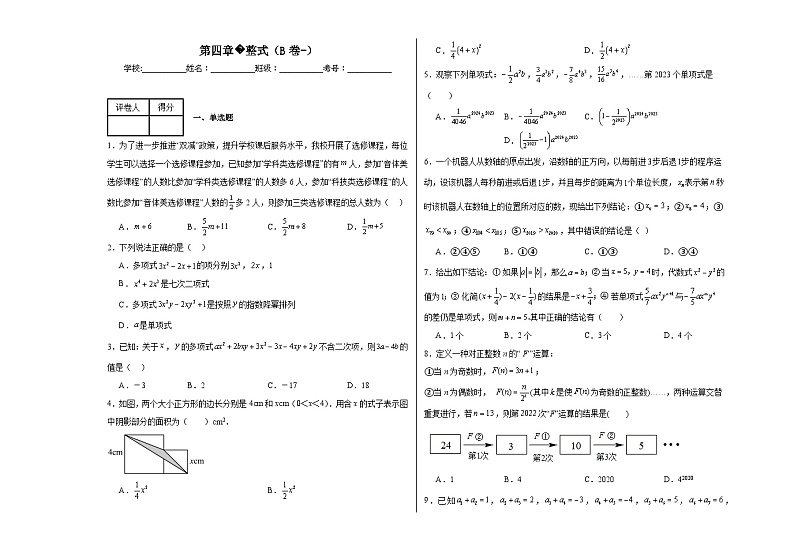 第四章�整式（B卷-）
学校:__________姓名：__________班级：__________考号：__________
评卷人 得分
一、单选题
1．为了进一步推进“双减”政策，提升学校课后服务水平，我校开展了选修课程，每位
学生可以选择一个选修课程参加，已知参加“学科类选修课程”的有m人，参加“音体美
选修课程”的人数比参加“学科类选修课程”的人数多6人，参加“科技类选修课程”的人
数比参加“音体美选修课程”人数的1/2多2人，则参加三类选修课程的总人数为（ ）
A．m+6 B．5/2m+11 C．5/2m+8 D．1/2m+5
2．下列说法正确的是（ ）
A．多项式3x²−2x+1的项分别3x²，2x，1
B．x⁴+2x³是七次二项式
C．多项式3x²y−2xy³+1是按照y的指数降幂排列
D．a是单项式
3．已知：关于x，y的多项式ax²+2bxy+3x²−3x−4xy+2y不含二次项，则3a−4b的
值是（ ）
A．－3 B．2 C．－17 D．18
4．如图，两个大小正方形的边长分别是4cm和xcm（0＜x＜4）．用含x的式子表示图
中阴影部分的面积为（ ）cm²．
4cm
xcm
A．1/4x² B．1/2x²
C．1/4(4+x)² D．1/2(4+x)²
5．观察下列单项式：−1/2a²b，3/4a³b²，−7/8a⁴b³，15/16a⁵b⁴，……第2023个单项式是
（ ）
A．1/4046a²⁰²⁴b²⁰²³ B．−1/4046a²⁰²⁴b²⁰²³ C．(1−1/2²⁰²³)a²⁰²⁴b²⁰²³
D．(1/2²⁰²³−1)a²⁰²⁴b²⁰²³
6．一个机器人从数轴的原点出发，沿数轴的正方向，以每前进3步后退1步的程序运
动，设该机器人每秒前进或后退1步，并且每步的距离为1个单位长度，xₙ表示第n秒
时该机器人在数轴上的位置所对应的数，现给出下列结论：①x₃=3；②x₅=4；③
④ ⑤ ，其中错误的结论是（ ）
A．②④⑤ B．①④ C．①③ D．③④
7．给出如下结论：①如果|a|=|b|，那么a=b；②当x=5，y=4时，代数式x²−y²的
值为1；③化简(x+1/4)−2(x−1/4)的结果是−x+3/4；④若单项式5/7ax²yⁿ⁺¹与−7/5axᵐy⁴
的差仍是单项式，则m+n=5.其中正确的结论有（ ）
A．1个 B．2个 C．3个 D．4个
8．定义一种对正整数n的“F”运算：
①当n为奇数时，F(n)=3n+1；
②当n为偶数时，F(n)=n/2ᵏ(其中k是使F为奇数的正整数)……，两种运算交替
重复进行，若n=13，则第2022次“F”运算的结果是( )
24 F② 第1次 3 F① 第2次 10 F② 第3次 5 •••
A．1 B．4 C．2020 D．4²⁰²⁰
9．已知a₁+a₂=1，a₂+a₃=2，a₃+a₄=−3，a₄+a₅=−4，a₅+a₆=5，a₆+a₇=6，